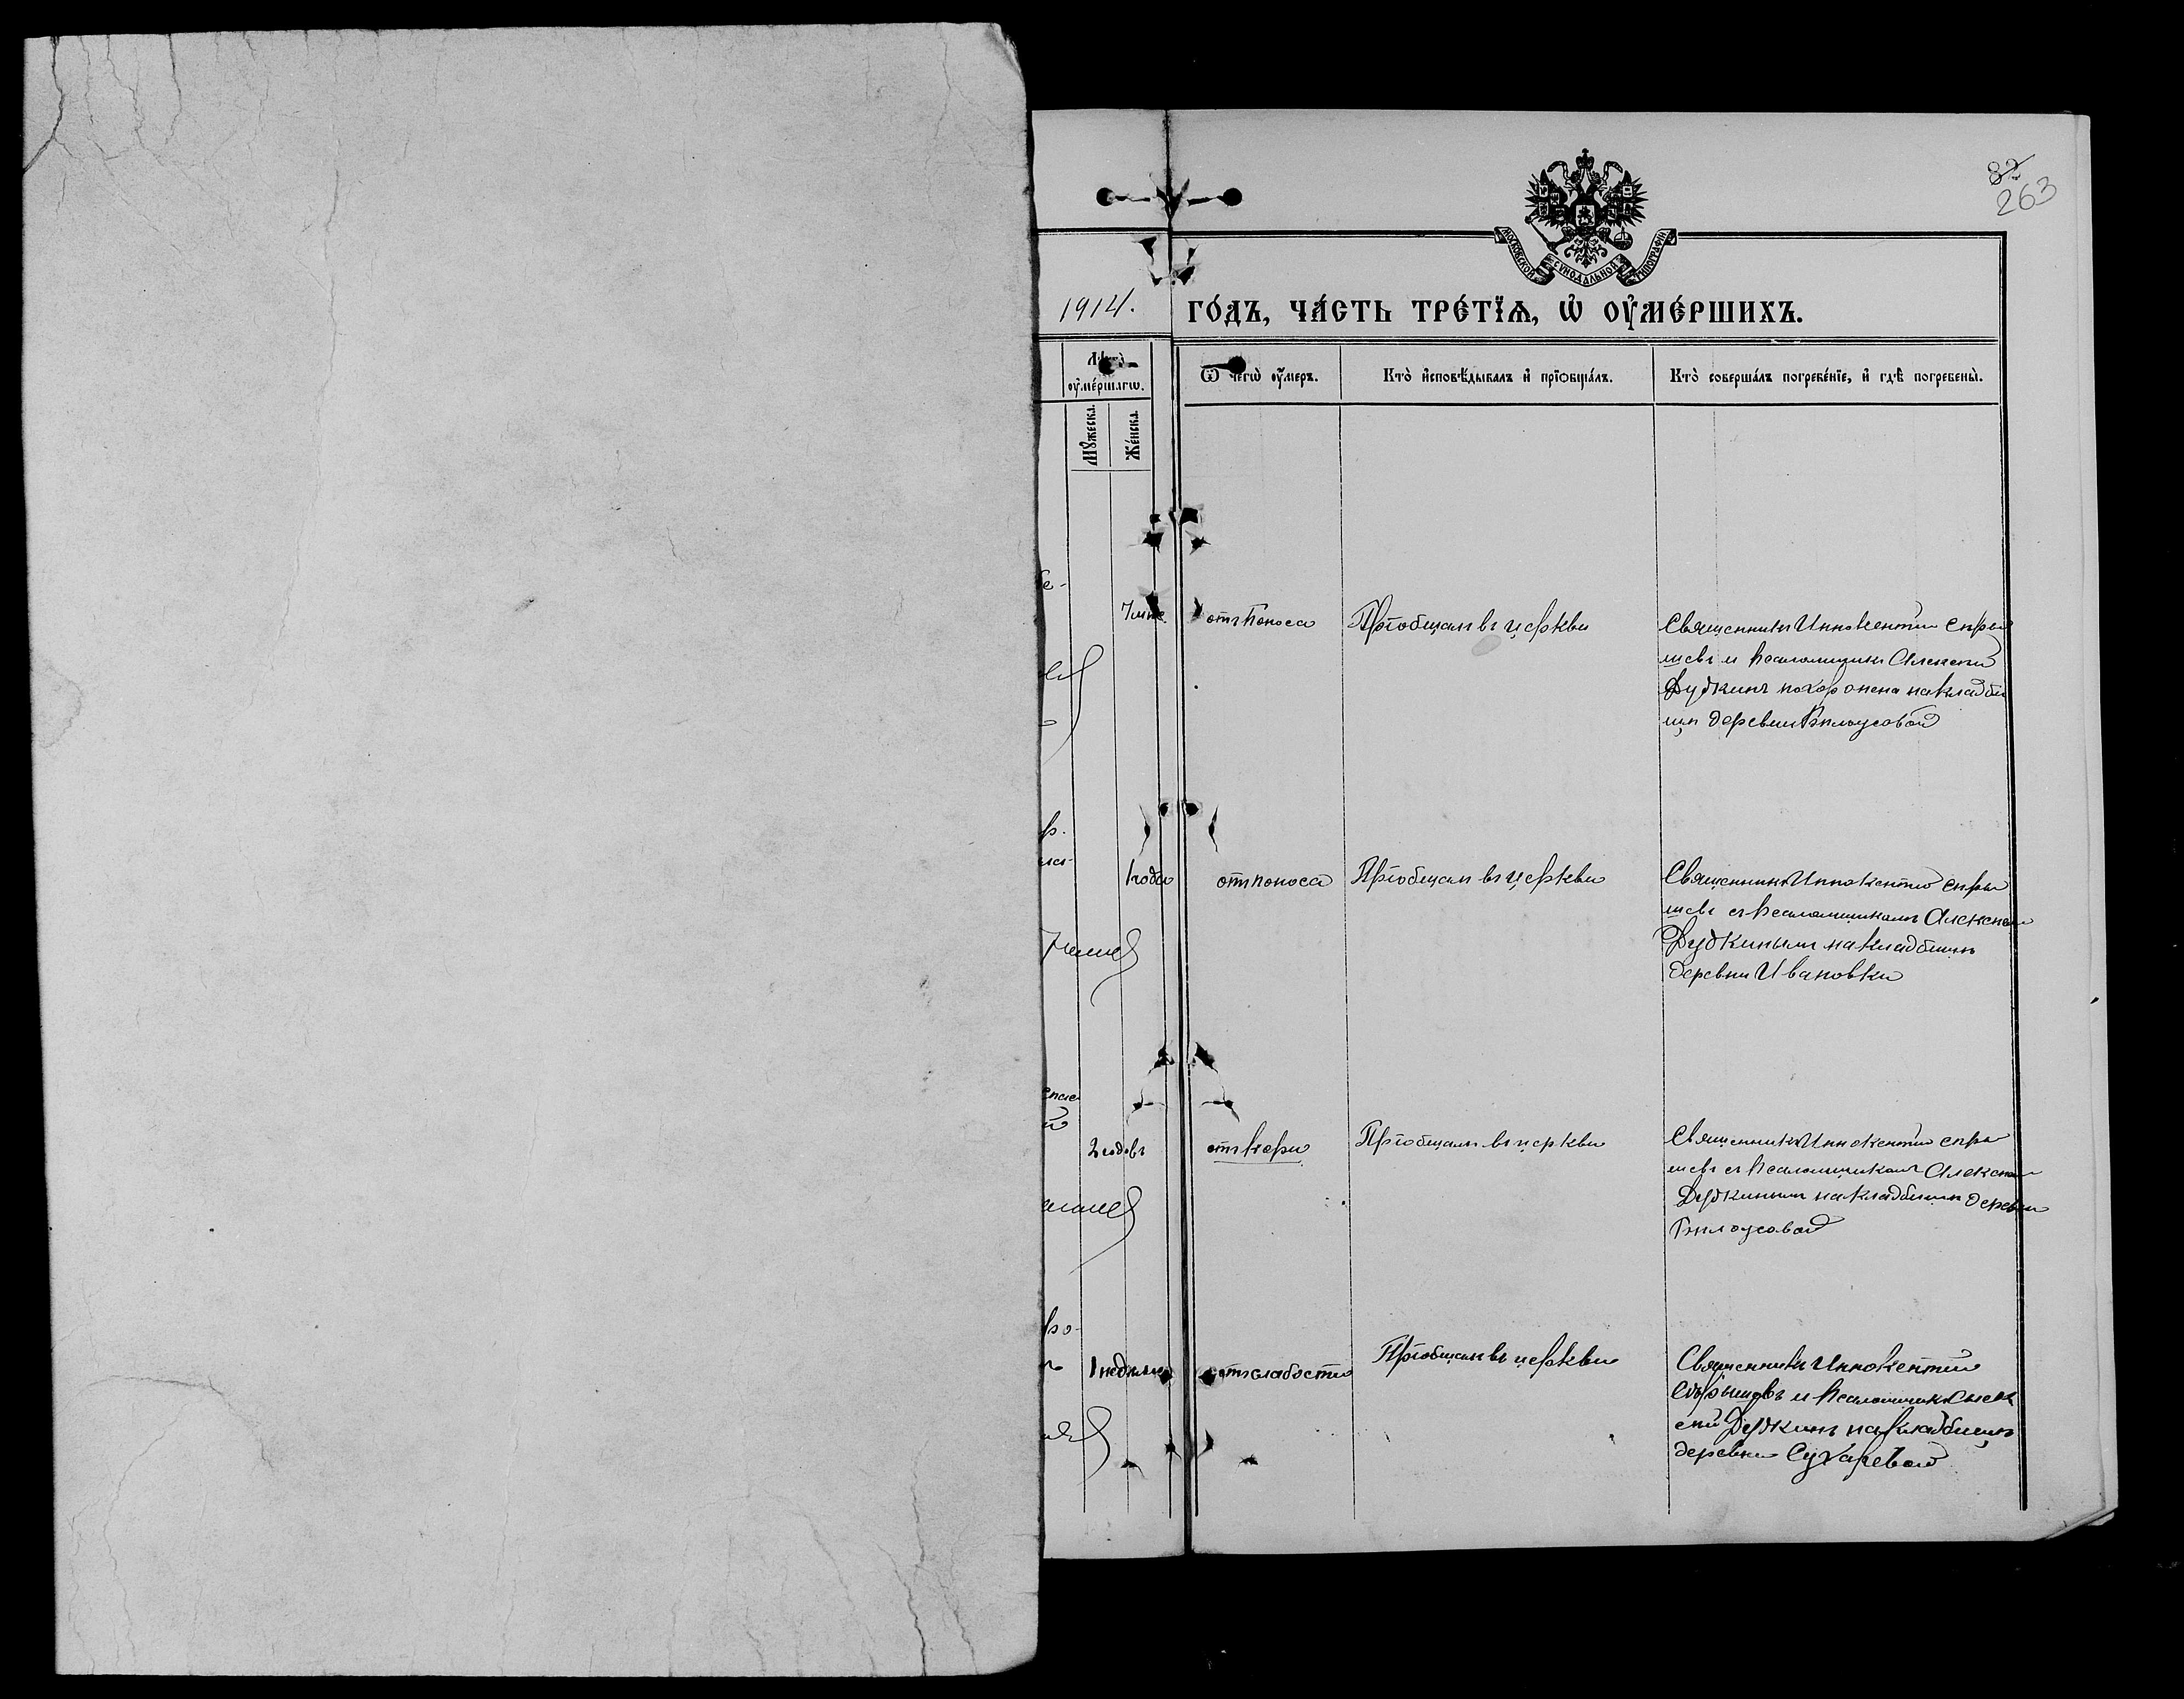 82
263
МОСКОВСКОЙ СѴНОДАЛЬНОЙ ТИПОГРАФІИ
1914.
ГО́ДЪ, ЧА́СТЬ ТРЕ́ТЇѦ, Ѡ҆ ОУ҆МЕ́РШИХЪ.
Лѣ̀та̀
оу҆ме́ршагѡ.
Мꙋ́жеска.
Же́нска.
Ѿ чегѡ̀ оу҆́меръ.
Кто̀ и҆сповѣ́дывалъ и҆ прїѡбща́лъ.
Кто̀ соверша́лъ погребе́нїе, и҆ гдѣ̀ погребены̀.
7 мѣс.
отъ поноса
Пріобщали въ церкви
Священникъ Иннокентій
шевъ и псаломщикъ Алексей
Дудкинъ похоронена на кладби
щѣ деревни Бѣлоусовой
1 года
отъ поноса
Пріобщали въ церкви
Священникъ Иннокентій
шевъ съ псаломщикомъ Алексеем
Дудкинымъ на кладбищѣ
деревни Ивановки
2 годовъ
отъ кори
Пріобщали въ церкви
Священникъ Иннокентій
шевъ съ псаломщикомъ Алексеем
Дудкинымъ на кладбищѣ деревни
Бѣлоусовой
1 недѣли
отъ слабости
Пріобщали въ церкви
Священникъ Иннокентій
и псаломщикъ Алек
сей Дудкинъ на кладбищѣ
деревни Сухаревой